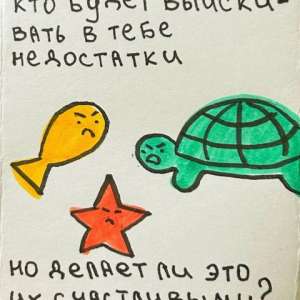 кто будет выиски-
вать в тебе
недостатки
но делает ли это
их счастливыми?